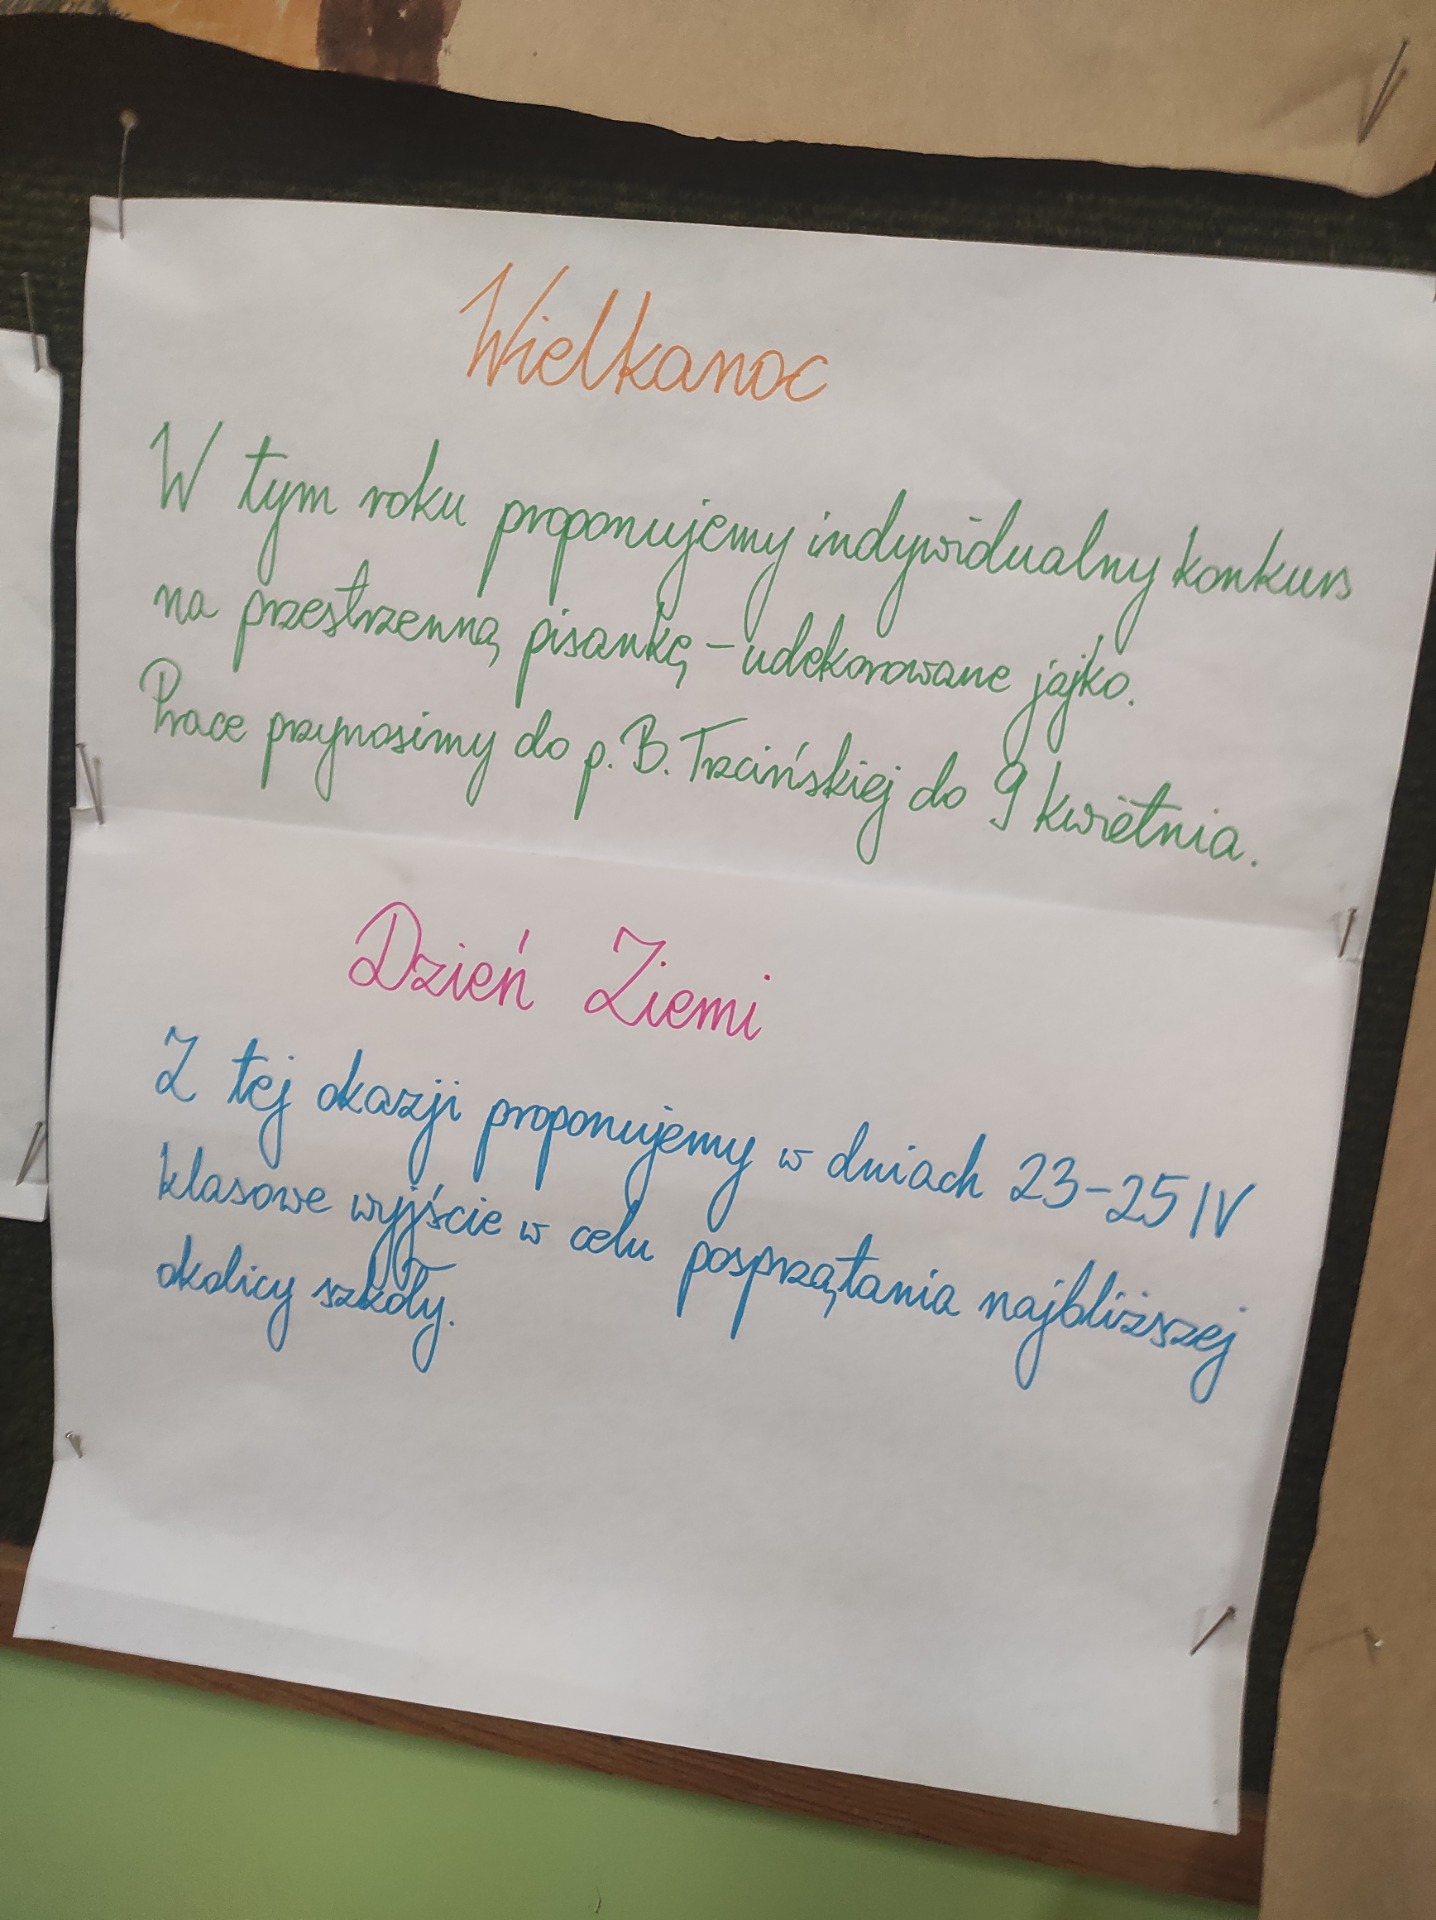 Wielkanoc
W tym roku proponujemy indywidualny konkurs
na przestrzenną pisankę – udekorowane jajko.
Prace przynosimy do p. B. Trzcińskiej do 9 kwietnia.
Dzień Ziemi
Z tej okazji proponujemy w dniach 23-25 IV
klasowe wyjście w celu posprzątania najbliższej
okolicy szkoły.